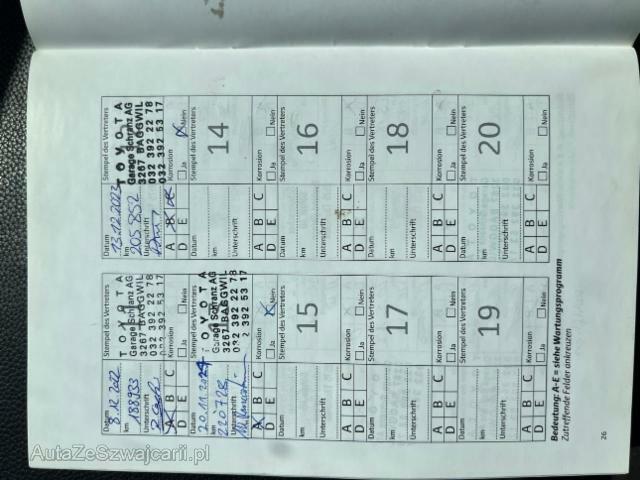 Datum
8.12.2022
km
188933
Unterschrift
Stempel des Vertreters
TOYOTA
Garage Schranz AG
3267 BAGGWIL
032 392 22 78
032 392 53 17
A B C
D E
Korrosion
Ja Nein
Datum
13.12.2023
km
205'852
Unterschrift
Stempel des Vertreters
TOYOTA
Garage Schranz AG
3267 BAGGWIL
032 392 22 78
032 392 53 17
A B C
D E
Korrosion
Ja Nein
Datum
20.11.2024
km
Unterschrift
Stempel des Vertreters
TOYOTA
Garage Schranz AG
3267 BAGGWIL
032 392 22 78
032 392 53 17
A B C
D E
Korrosion
Ja Nein
Datum
km
Unterschrift
Stempel des Vertreters
14
A B C
D E
Korrosion
Ja Nein
Datum
km
Unterschrift
Stempel des Vertreters
15
A B C
D E
Korrosion
Ja Nein
Datum
km
Unterschrift
Stempel des Vertreters
16
A B C
D E
Korrosion
Ja Nein
Datum
km
Unterschrift
Stempel des Vertreters
17
A B C
D E
Korrosion
Ja Nein
Datum
km
Unterschrift
Stempel des Vertreters
18
A B C
D E
Korrosion
Ja Nein
Datum
km
Unterschrift
Stempel des Vertreters
19
A B C
D E
Korrosion
Ja Nein
Datum
km
Unterschrift
Stempel des Vertreters
20
A B C
D E
Korrosion
Ja Nein
Bedeutung: A-E = siehe Wartungsprogramm
Zutreffende Felder ankreuzen
26
AutaZeSzwajcarii.pl